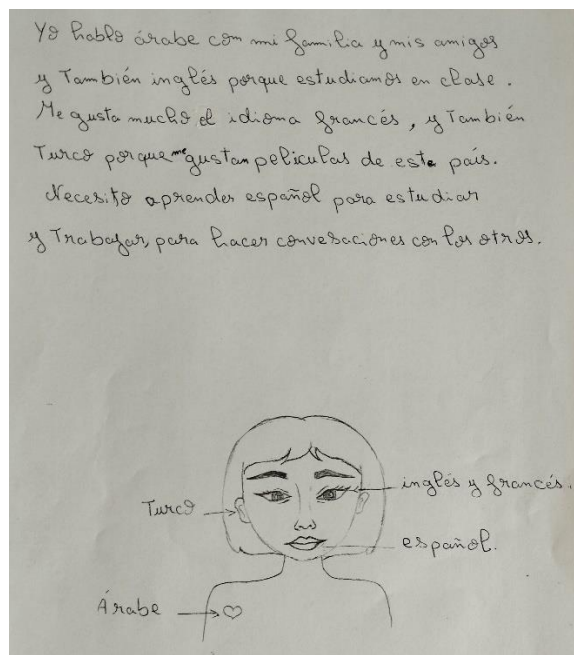 Yo hablo árabe con mi familia y mis amigos
y También inglés porque estudiamos en clase.
Me gusta mucho el idioma francés, y También
Turco porque me gustan peliculas de este país.
Necesito aprender español para estudiar
y Trabajar, para hacer convesaciones con los otros.
inglés y francés.
Turco
español.
Árabe